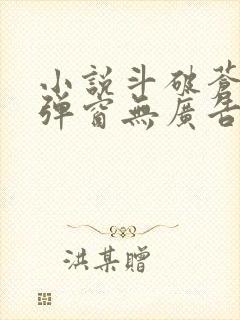 小說斗破蒼
彈窗無廣告
洪某贈